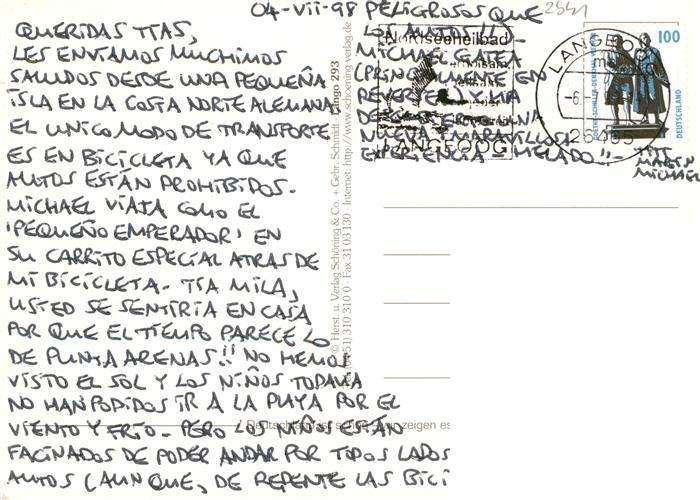 04-VII-98
QUERIDAS TIAS,
LES ENVIAMOS MUCHIMOS
SALUDOS DESDE UNA PEQUEÑA
ISLA EN LA COSTA NORTE ALEMANA
EL UNICO MODO DE TRANSPORTE
ES EN BICICLETA YA QUE
AUTOS ESTÁN PROHIBIDOS.
MICHAEL VIAJA COMO EL
'PEQUEÑO EMPERADOR' EN
SU CARRITO ESPECIAL ATRAS DE
MI BICICLETA. TIA MILA,
USTED SE SENTIRIA EN CASA
POR QUE EL TIEMPO PARECE LO
DE PUNTA ARENAS!! NO HEMOS
VISTO EL SOL Y LOS NIÑOS TODAVIA
NO HAN PODIDOS IR A LA PLAYA POR EL
VIENTO Y FRIO. PERO LOS NIÑOS ESTÁN
FACINADOS DE PODER ANDAR POR TODOS LADOS
AUTOS (AUNQUE, DE REPENTE LAS BICI
PELIGROSOS QUE
LOS AUTOS!!)
MICHAEL ESTA
(PRINCIPALMENTE EN
UNA
NUEVA MARAVILLOSA
EXPERIENCIA - HELADO!!
MARTIN
MICHAEL
2541
Nordseeheilbad
LANGEOOG
LANGEOOG
26465
100
DEUTSCHLAND
Lango 293
© Herst. u. Verlag Schöning & Co. + Gebr. Schmidt
(0451) 310 310 0 · Fax 31 03 130 · Internet: http://www.schoening-verlag.de